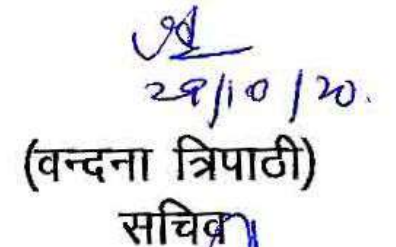 29/10/20.
(वन्दना त्रिपाठी)
सचिव